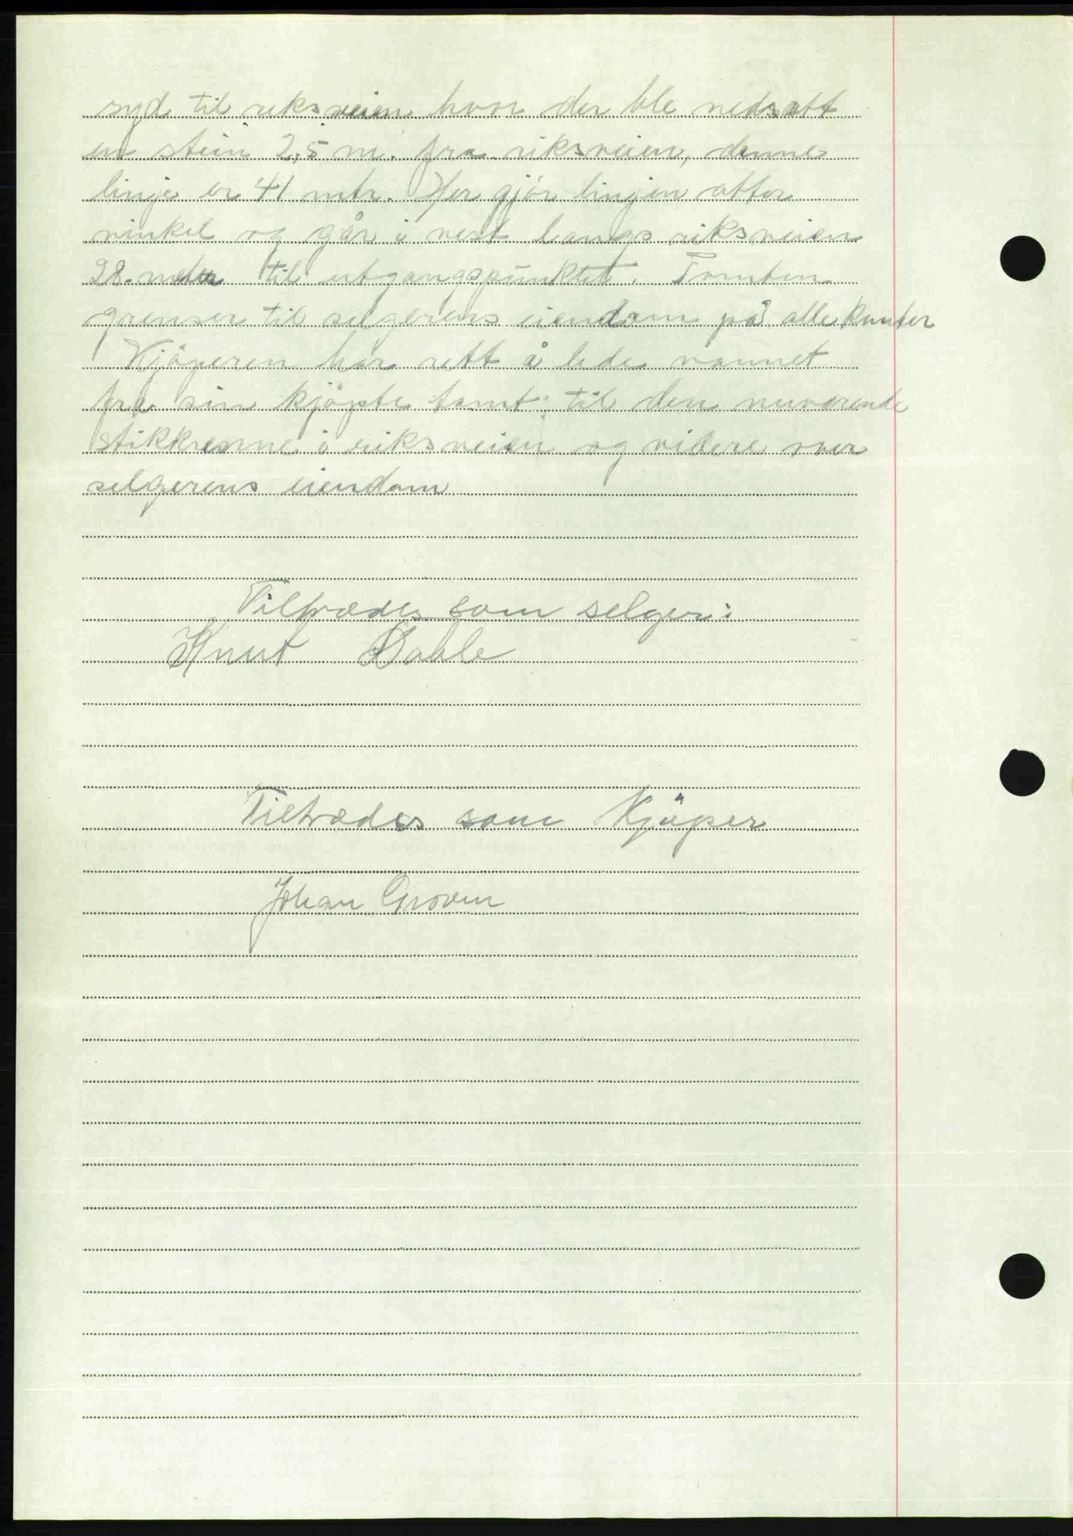 syd til riksveien hvor der ble nedsatt
en stein 2,5 m. fra riksveien, denne
linje er 41 mtr. Her gjör linjen atter
vinkel og går i vest langs riksveien
28 meter til utgangspunktet. Tomten
grenser til selgerens eiendom på alle kanter
Kjöperen har rett å lede vannet
fra sin kjöpte tomt til den nuværende
stikkrenne i riksveien og videre over
selgerens eiendom
Tiltrædes som selger:
Knut Dahle
Tiltrædes som Kjöper
Johan Groven